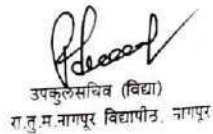 उपकुलसचिव (विद्या)
रा.तु.म.नागपूर विद्यापीठ, नागपूर